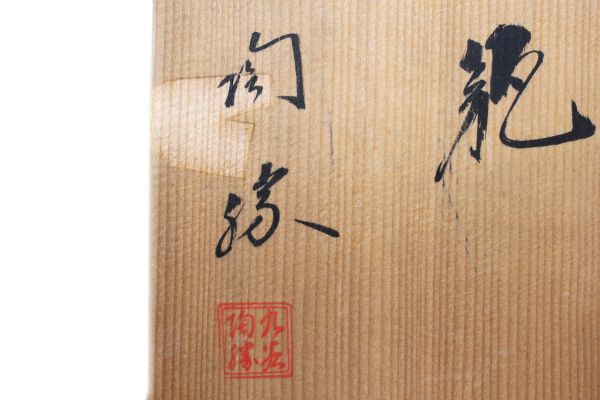 瓶
陶勝
九谷
陶勝